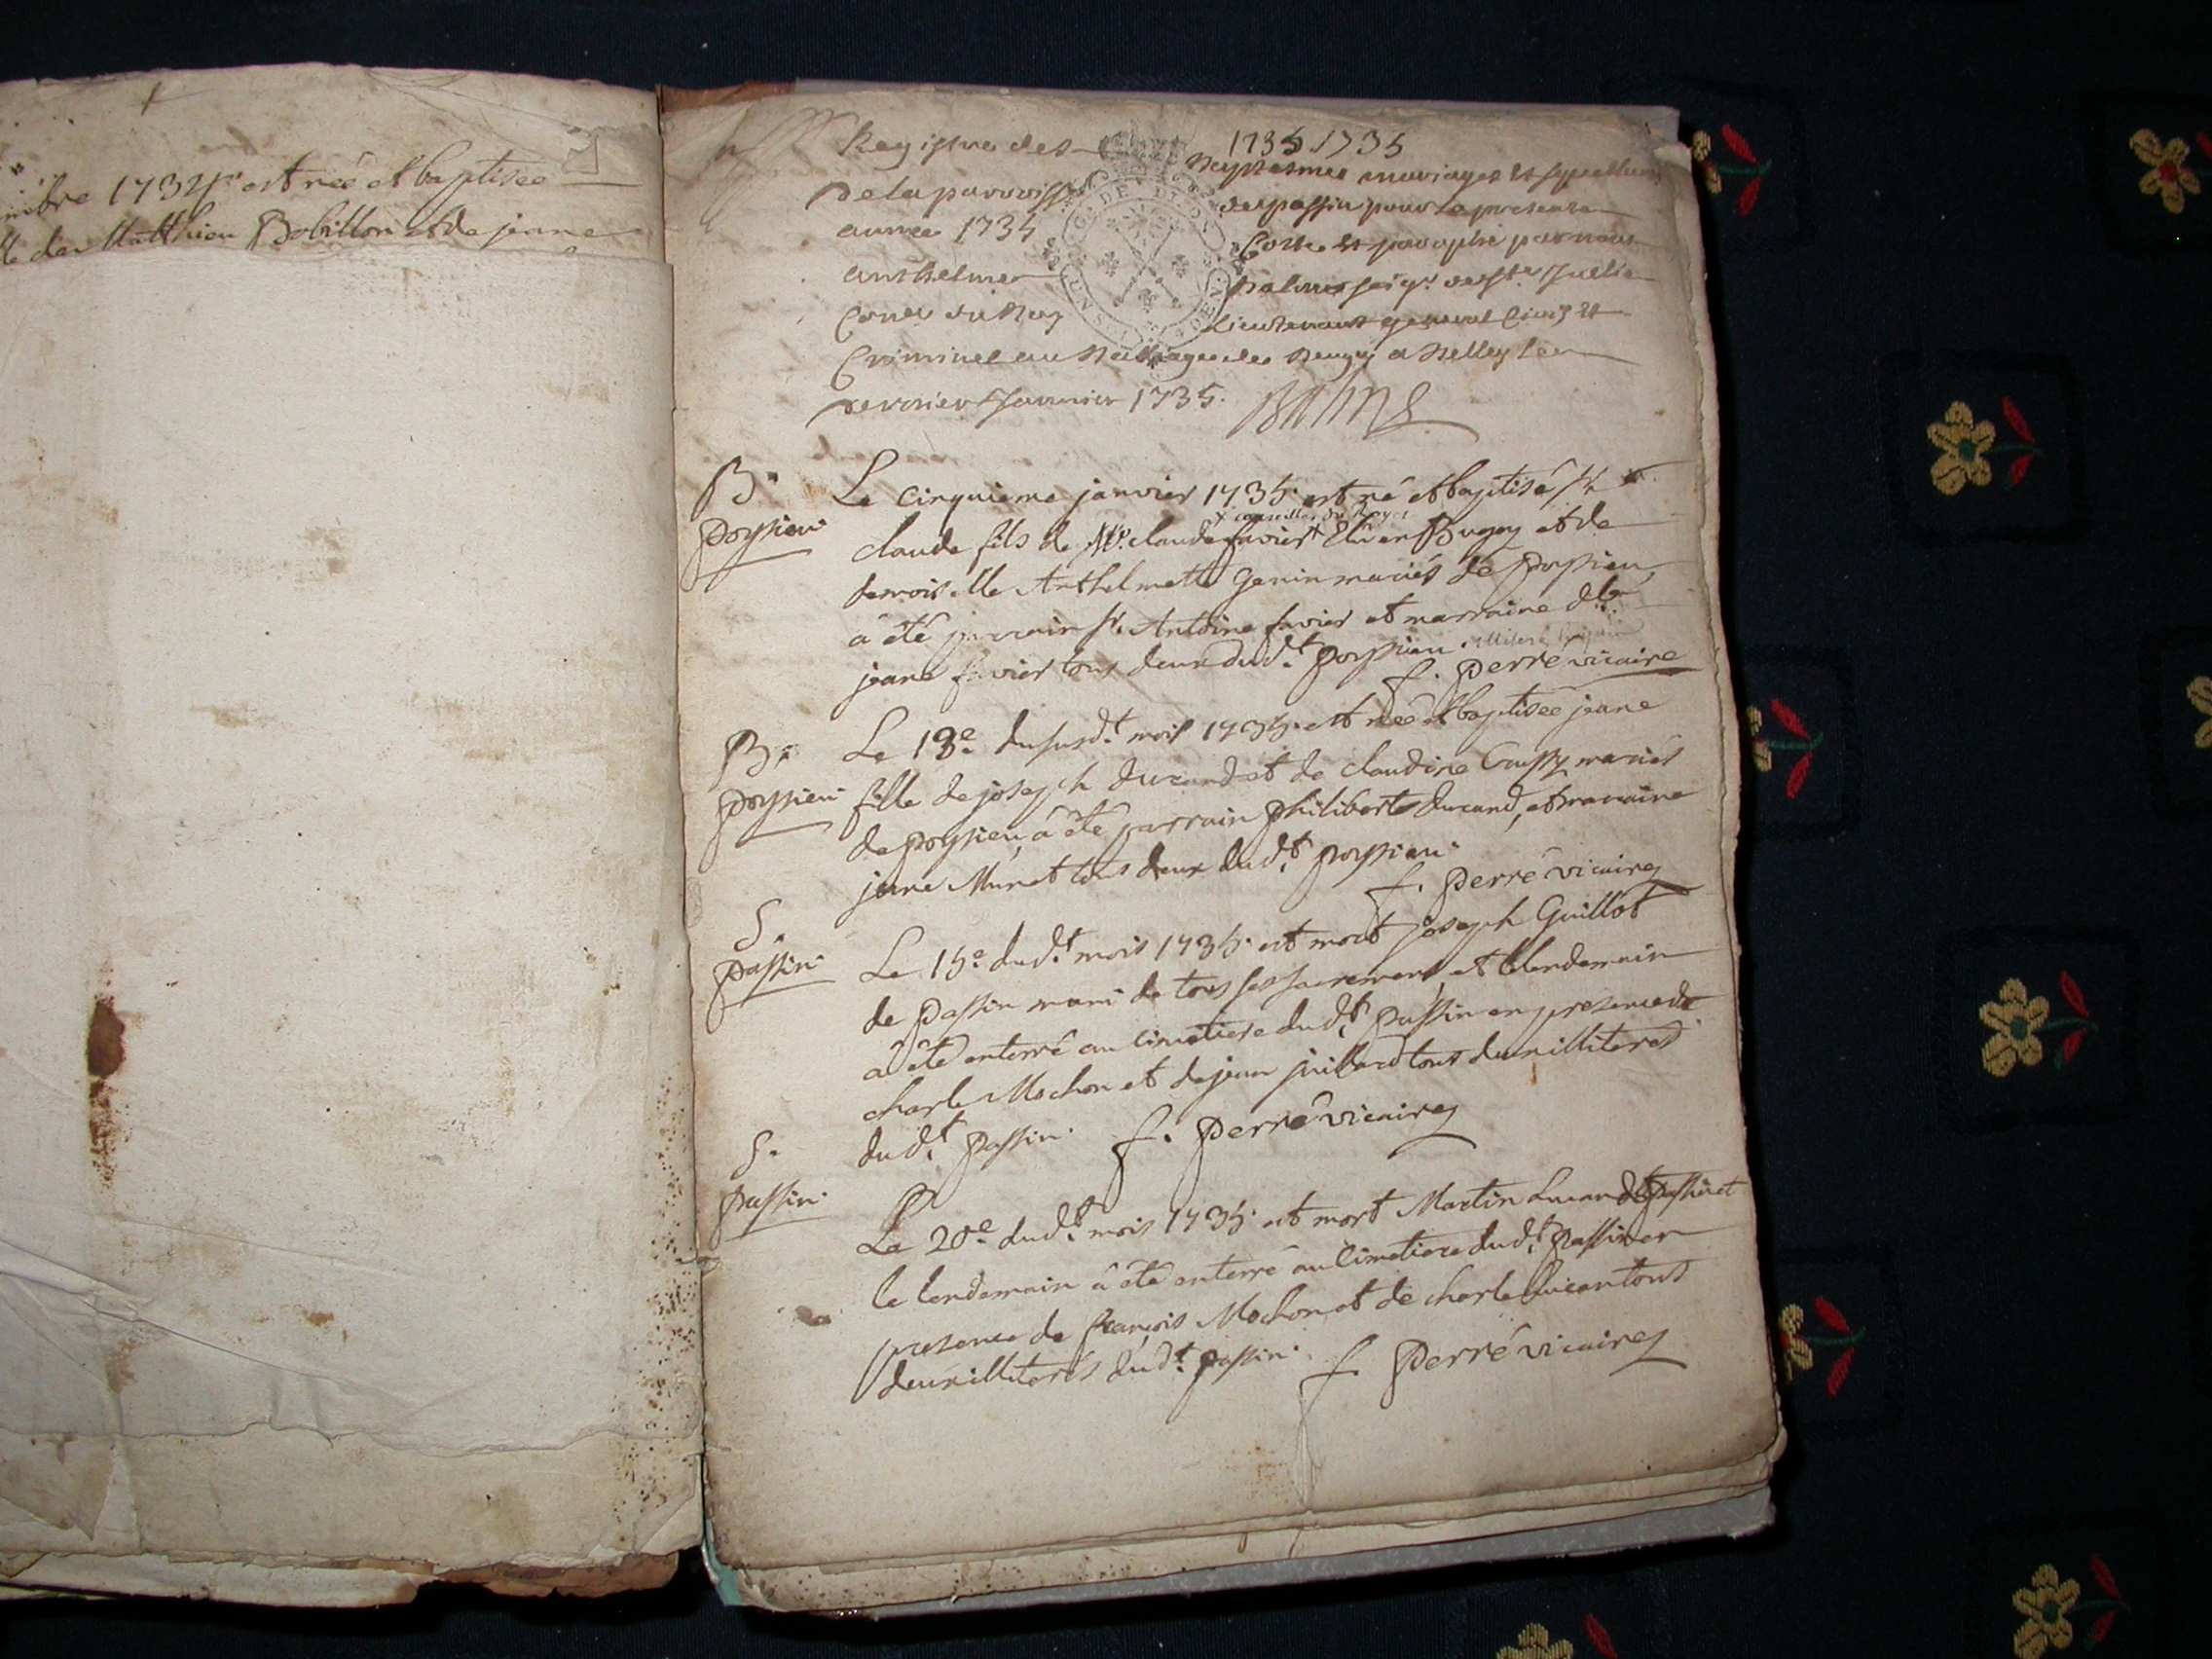 mbre 1734. est née et baptisée
de Matthieu Bobillon et de jeane
1735 1735
Registre des baptesmes mariages et sepultures
de la parroisse de passin pour la presente
année 1735 Cotté et paraphé par nous
anthelme Balme seigr. de ste. Jullie
Coner du Roy Lieutenant general Civil et
Criminel au Balliage de Beugey a Belley le
dernier Janvier 1735. Balme
B.
poysieu.
Le cinquieme janvier 1735. est né et baptisé sr.
x conseiller du Roy x
claude fils de Mr. claude favier x Elu en Bugey et de
demoiselle Anthelmette Genin mariés de poysieu
a été parrain sr. Antoine favier et marraine dlle.
jeane favier tous deux dud.t poysieu.
f. perré vicaire
B.
poysieu
Le 18e. du susd.t mois 1735. est née et baptisée jeane
fille de joseph durand et de claudine mariés
de poysieu, a été parrain philibert durand, et maraine
jeane Munet tous deux dud.t poysieu.
f. perré vicaire
S.
passin.
Le 15e. dud.t mois 1735. est mort joseph Guillot
de passin muni de tous ses sacremens, et le lendemain
a été enterré au cimetiere dud.t passin en presence de
charle Mochon et de jean juillard tous deux illiterés
dud.t passin. f. perré vicaire
S.
passin.
Le 20e. dud.t mois 1735. est mort Martin de passin et
le lendemain a été enterré au cimetiere dud.t passin en
presence de françois Mochon et de charle tous
deux illiterés dud.t passin. f. perré vicaire